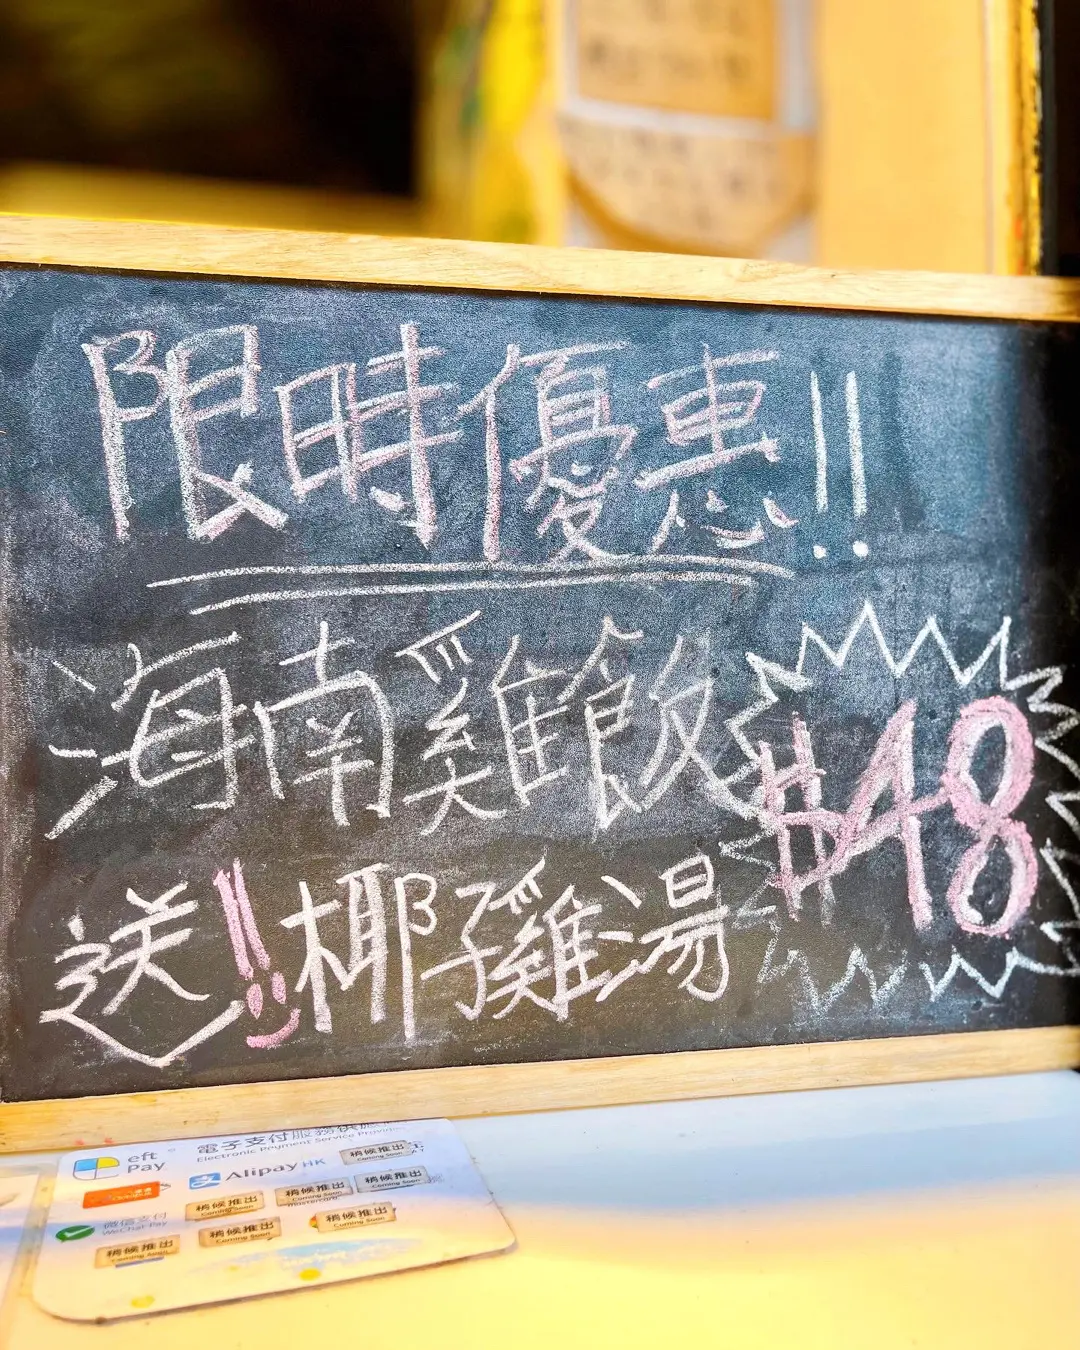 限時優惠!!
海南雞飯 $48
送!! 椰子雞湯
eft Pay
電子支付服務供應
Electronic Payment Service Provider
Alipay HK
稍候推出
Coming Soon
稍候推出
Coming Soon
稍候推出
Coming Soon
稍候推出
Coming Soon
微信支付
WeChat Pay
稍候推出
Coming Soon
稍候推出
Coming Soon
稍候推出
Coming Soon